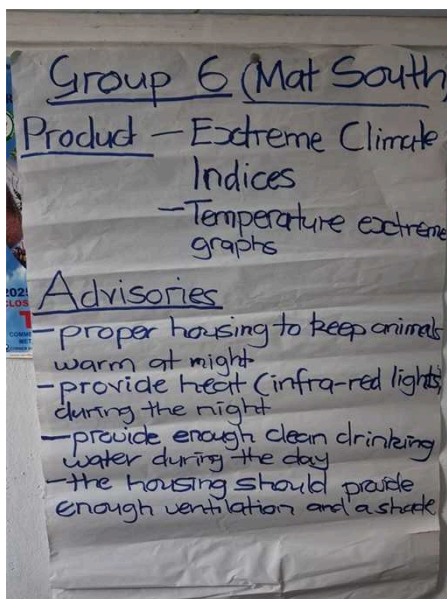 Group 6 (Mat South
Product – Extreme Climate
Indices
– Temperature extreme
graphs
Advisories
– proper housing to keep animals
warm at night
– provide heat (infra-red lights)
during the night
– provide enough clean drinking
water during the day
– the housing should provide
enough ventilation and a shade
202
CLOS
COMM
MET